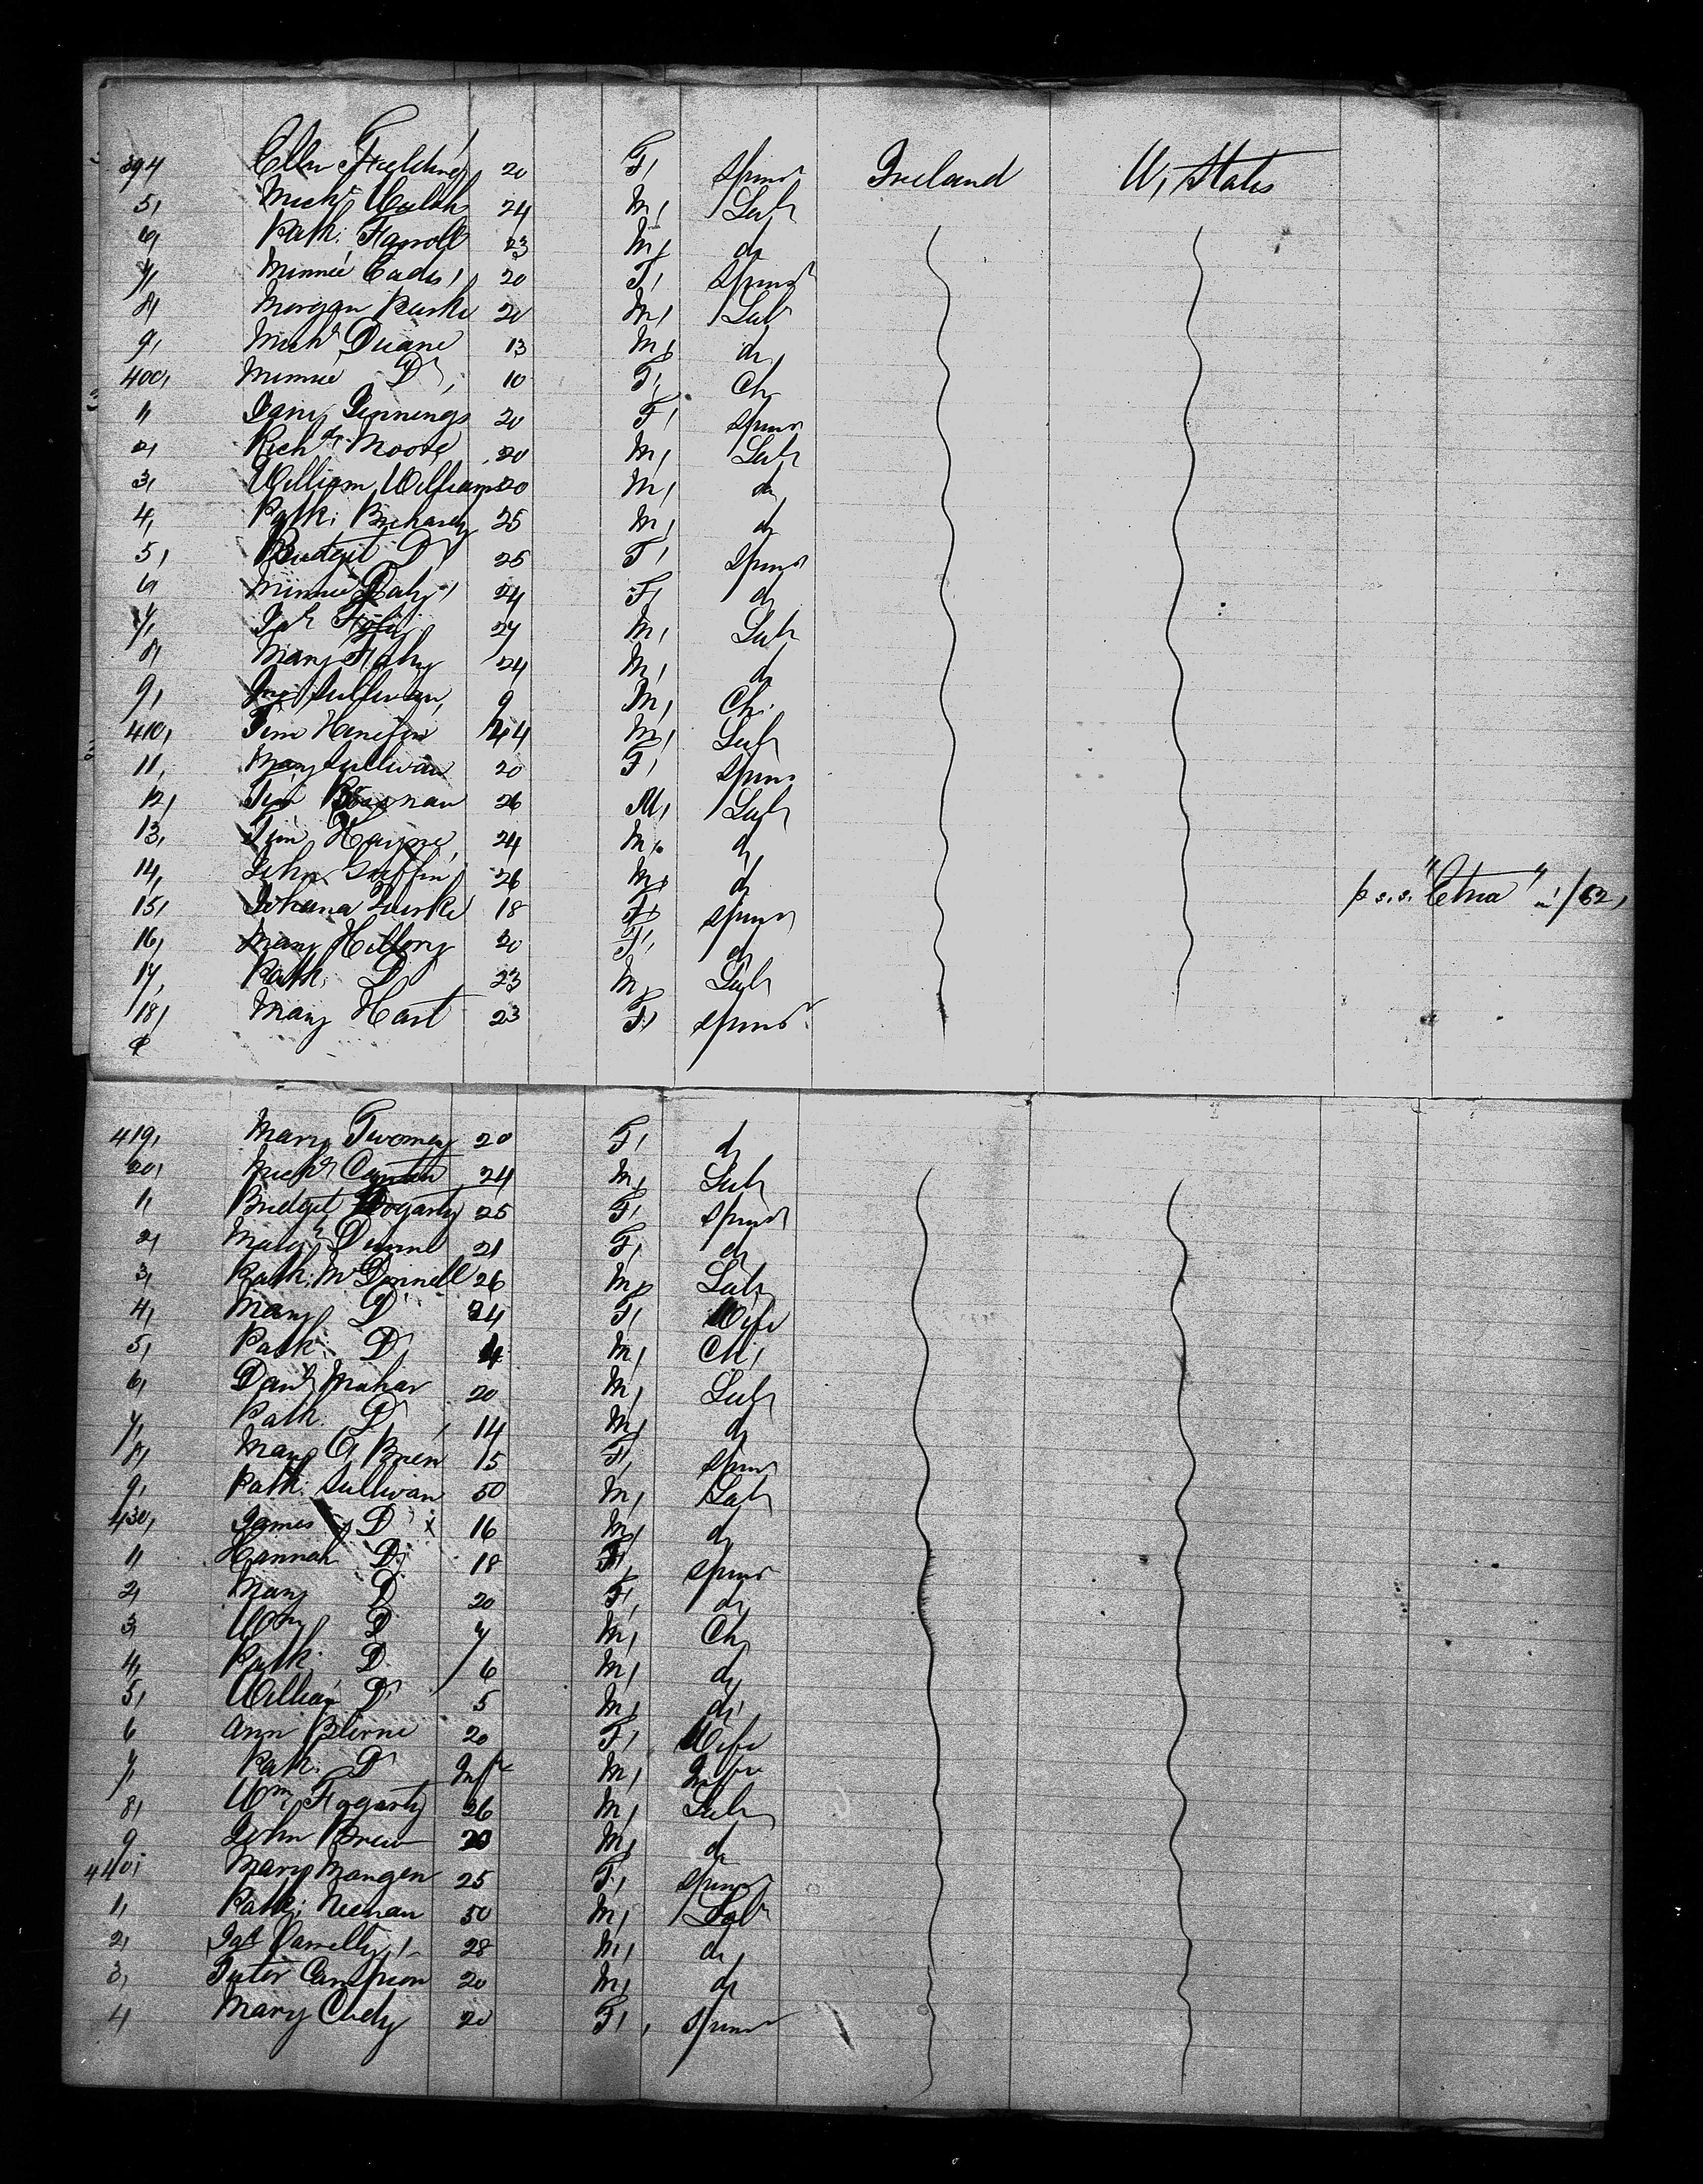 394 Ellen Fielding 20 F, Spinsr Ireland U, States
5, Michl Walsh 24 M, Labr
6, Patk: Farrell 23 M, do
7, Minnie Eades, 20 F, Spinsr
8, Morgan Burke 20 M, Labr
9, Michl Duane 13 M, do,
400, Minnie Do, 10 F, Ch,
1, Jennings 20 F, Spinsr
2, Richd Moore 20 M, Labr
3, William Williams 20 M, do
4, Patk: 25 M, do
5, Bridget Do 25 F, Spinsr
6, Minnie Daly, 24 F, do
7, 27 M, Labr
8, Mary Fahy 24 M, do
9, Sullivan, 9 M, Ch.
410, Tim Hanifin 44 M, Labr
11, Mary Sullivan 20 F, Spinsr
12, Tim Brosnan 26 M, Labr
13, Tim 24 M, do
14, John Griffin 26 M, do p s.s. "Etna" /62,
15, Johana 18 F, Spinsr
16, Mary 20 F, do
17, Patk: Do 23 M, Labr
18, Mary Hart 23 F, Spinsr
419, Mary Twomey 20 F, do
20, Michl 24 M, Labr
1, Bridget Fogarty 25 F, Spinsr
2, Margt Dunne 21 F, do
3, Patk: McDonnell 26 M, Labr
4, Mary Do 24 F, Wife
5, Patk: Do 4 M, Ch,
6, Danl Mahar 20 M, Labr
7, Patk. Do, 14 M, do
8, Mary O'Brien 15 F, Spinsr
9, Patk: Sullivan 50 M, Labr
430, James Do x 16 M, do
1, Hannah Do 18 F, Spinsr
2, Mary Do 20 F, do
3, Wm Do 7 M, Ch,
4, Patk: Do 6 M, do
5, William Do 5 M, do
6 Ann 20 F, Wife
7, Patk. Do Inft M, Inft
8, Wm Fogarty 26 M, Labr
9 John M, do
440, Mary Mangen 25 F, Spinsr
1, Patk: Neenan 50 M, Labr
2, 28 M, do,
3, Peter Campion 20 M, do
4 Mary Cody 20 F, Spinsr